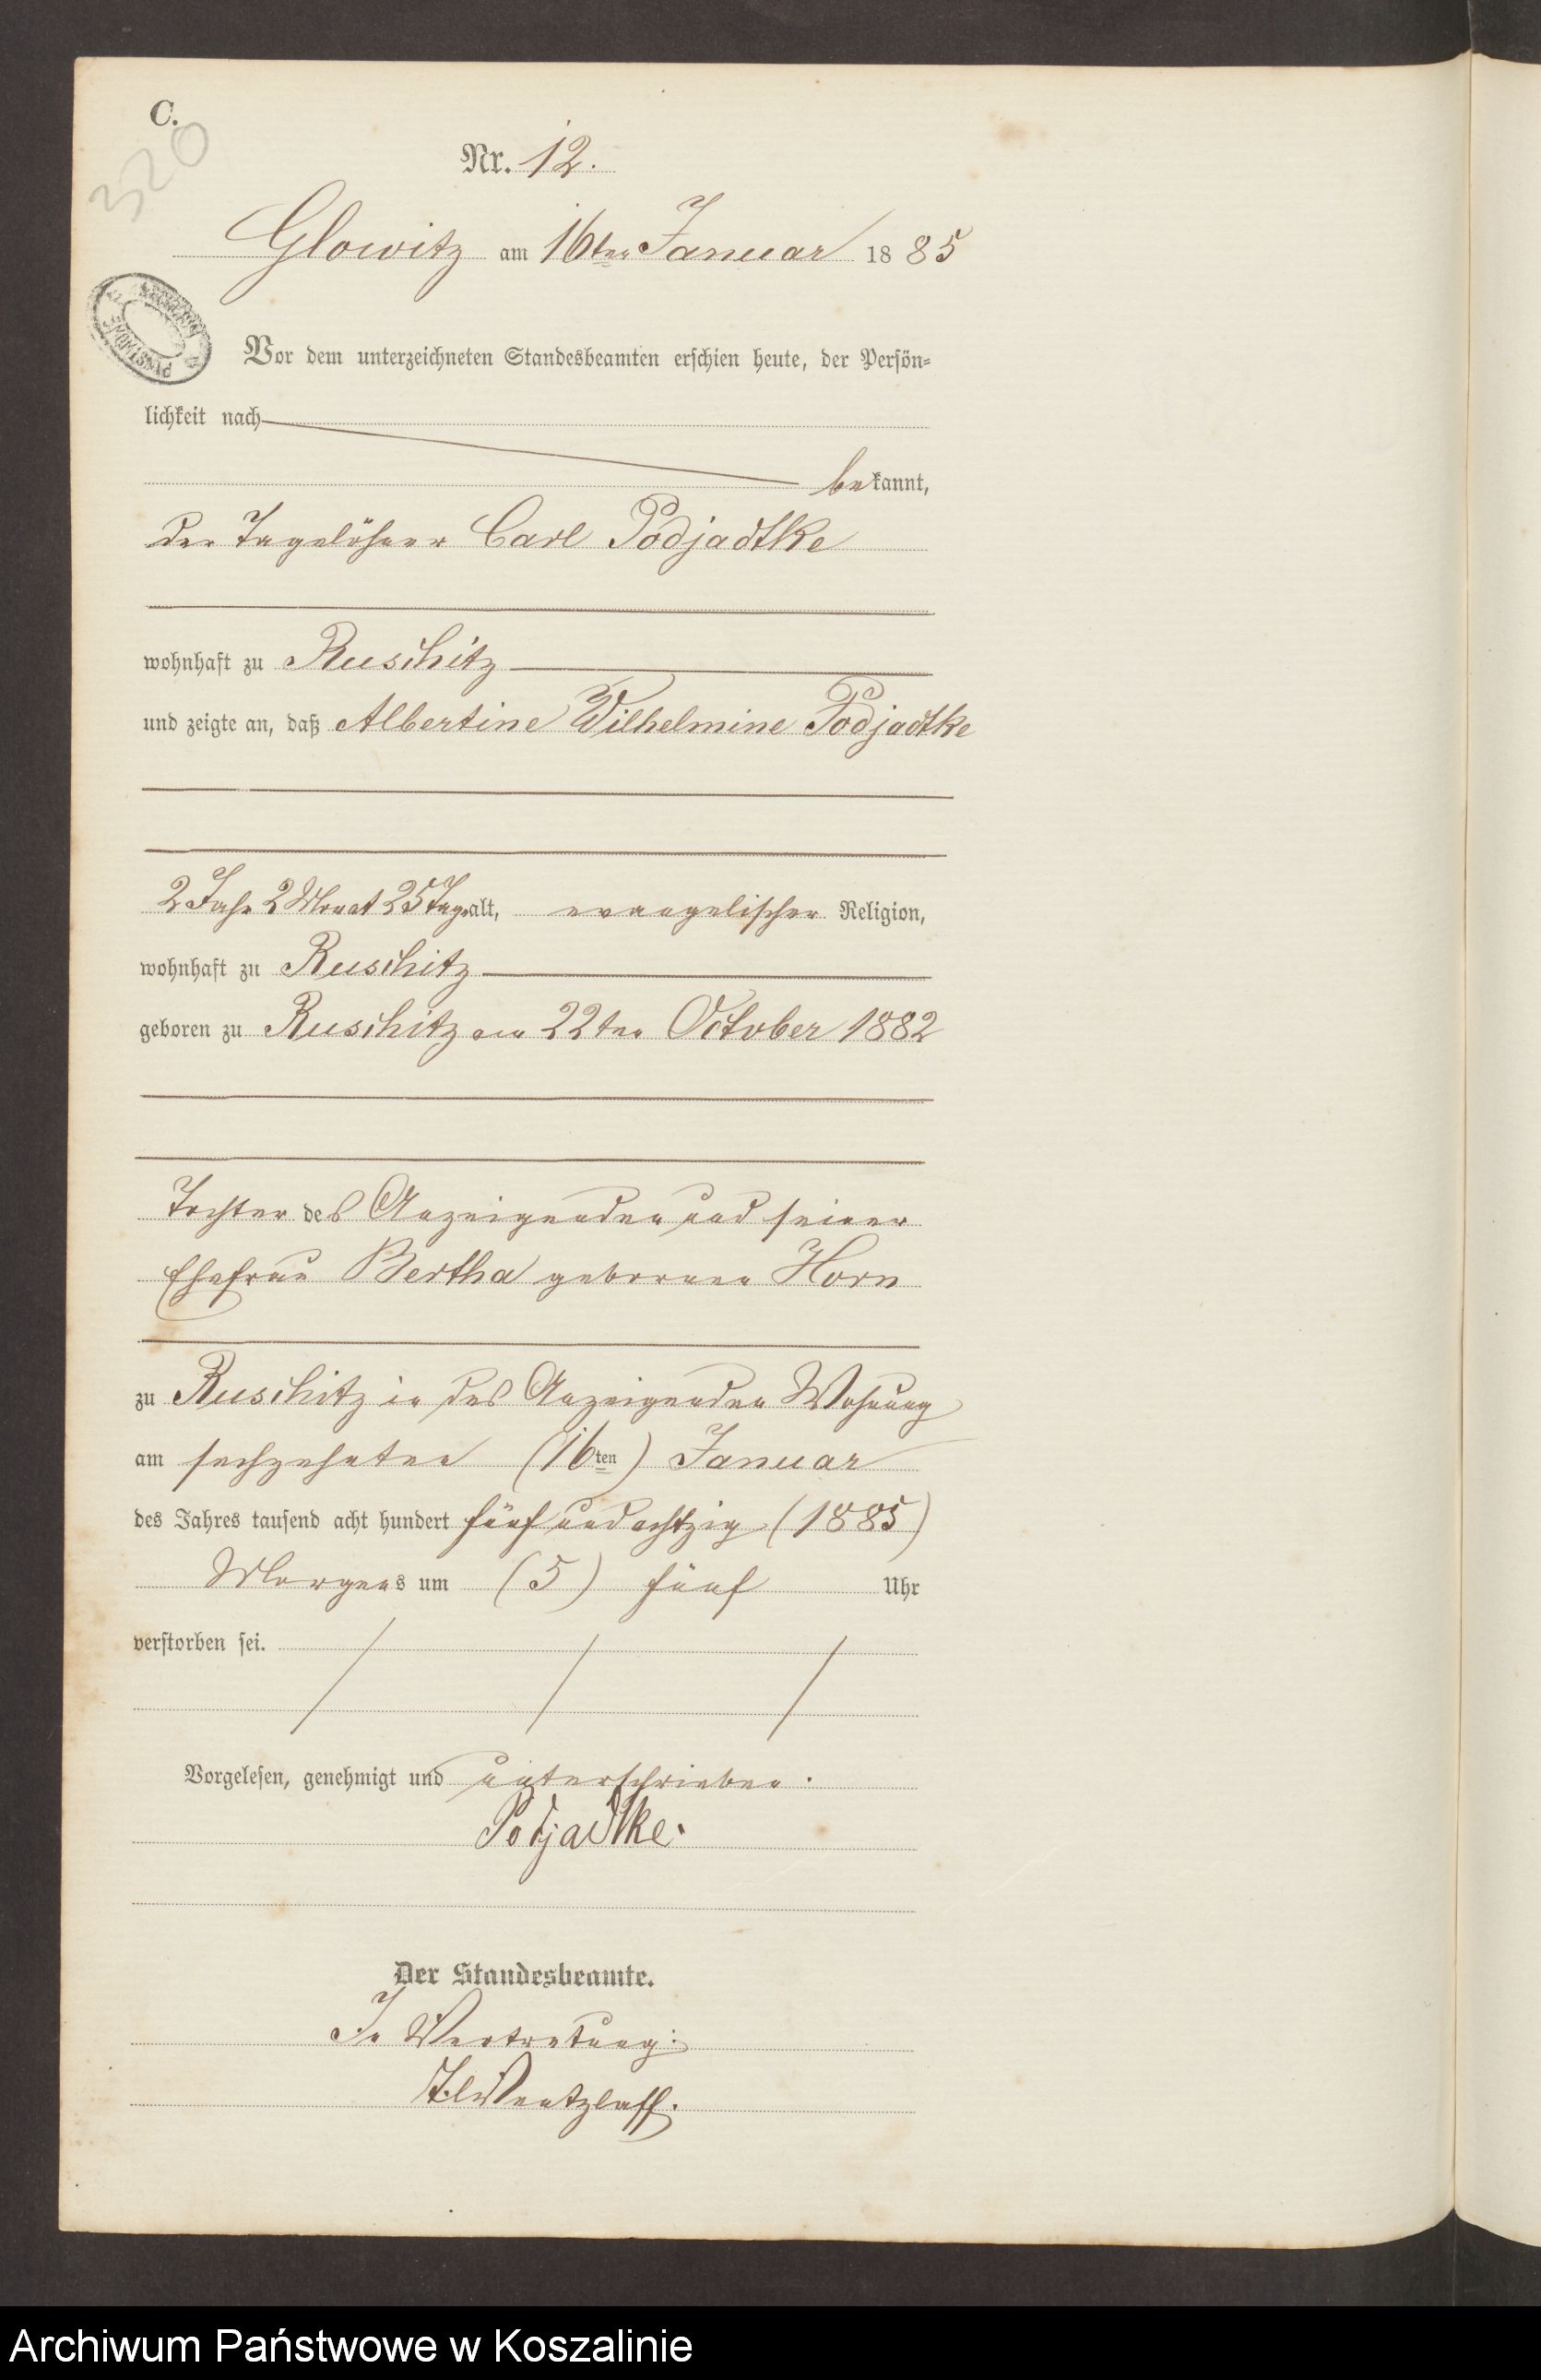 C.
320
Nr. 12.
Glowitz am 16ten Januar 1885
ARCHIWUM PAŃSTWOWE
Vor dem unterzeichneten Standesbeamten erschien heute, der Persön-
lichkeit nach
bekannt,
der Tagelöhner Carl Podjadtke
wohnhaft zu Ruschitz
und zeigte an, daß Albertine Wilhelmine Podjadtke
2 Jahr 2 Monat 25 Tage alt, evangelischer Religion,
wohnhaft zu Ruschitz
geboren zu Ruschitz am 22ten October 1882
Tochter des Anzeigenden und seiner
Ehefrau Bertha geborenen Horn
zu Ruschitz in des Anzeigenden Wohnung
am sechzehnten (16ten) Januar
des Jahres tausend acht hundert fünf und achtzig (1885)
Morgens um (5) fünf Uhr
verstorben sei.
Vorgelesen, genehmigt und unterschrieben.
Podjadtke.
Der Standesbeamte.
In Vertretung:
Wentzlaff.
Archiwum Państwowe w Koszalinie